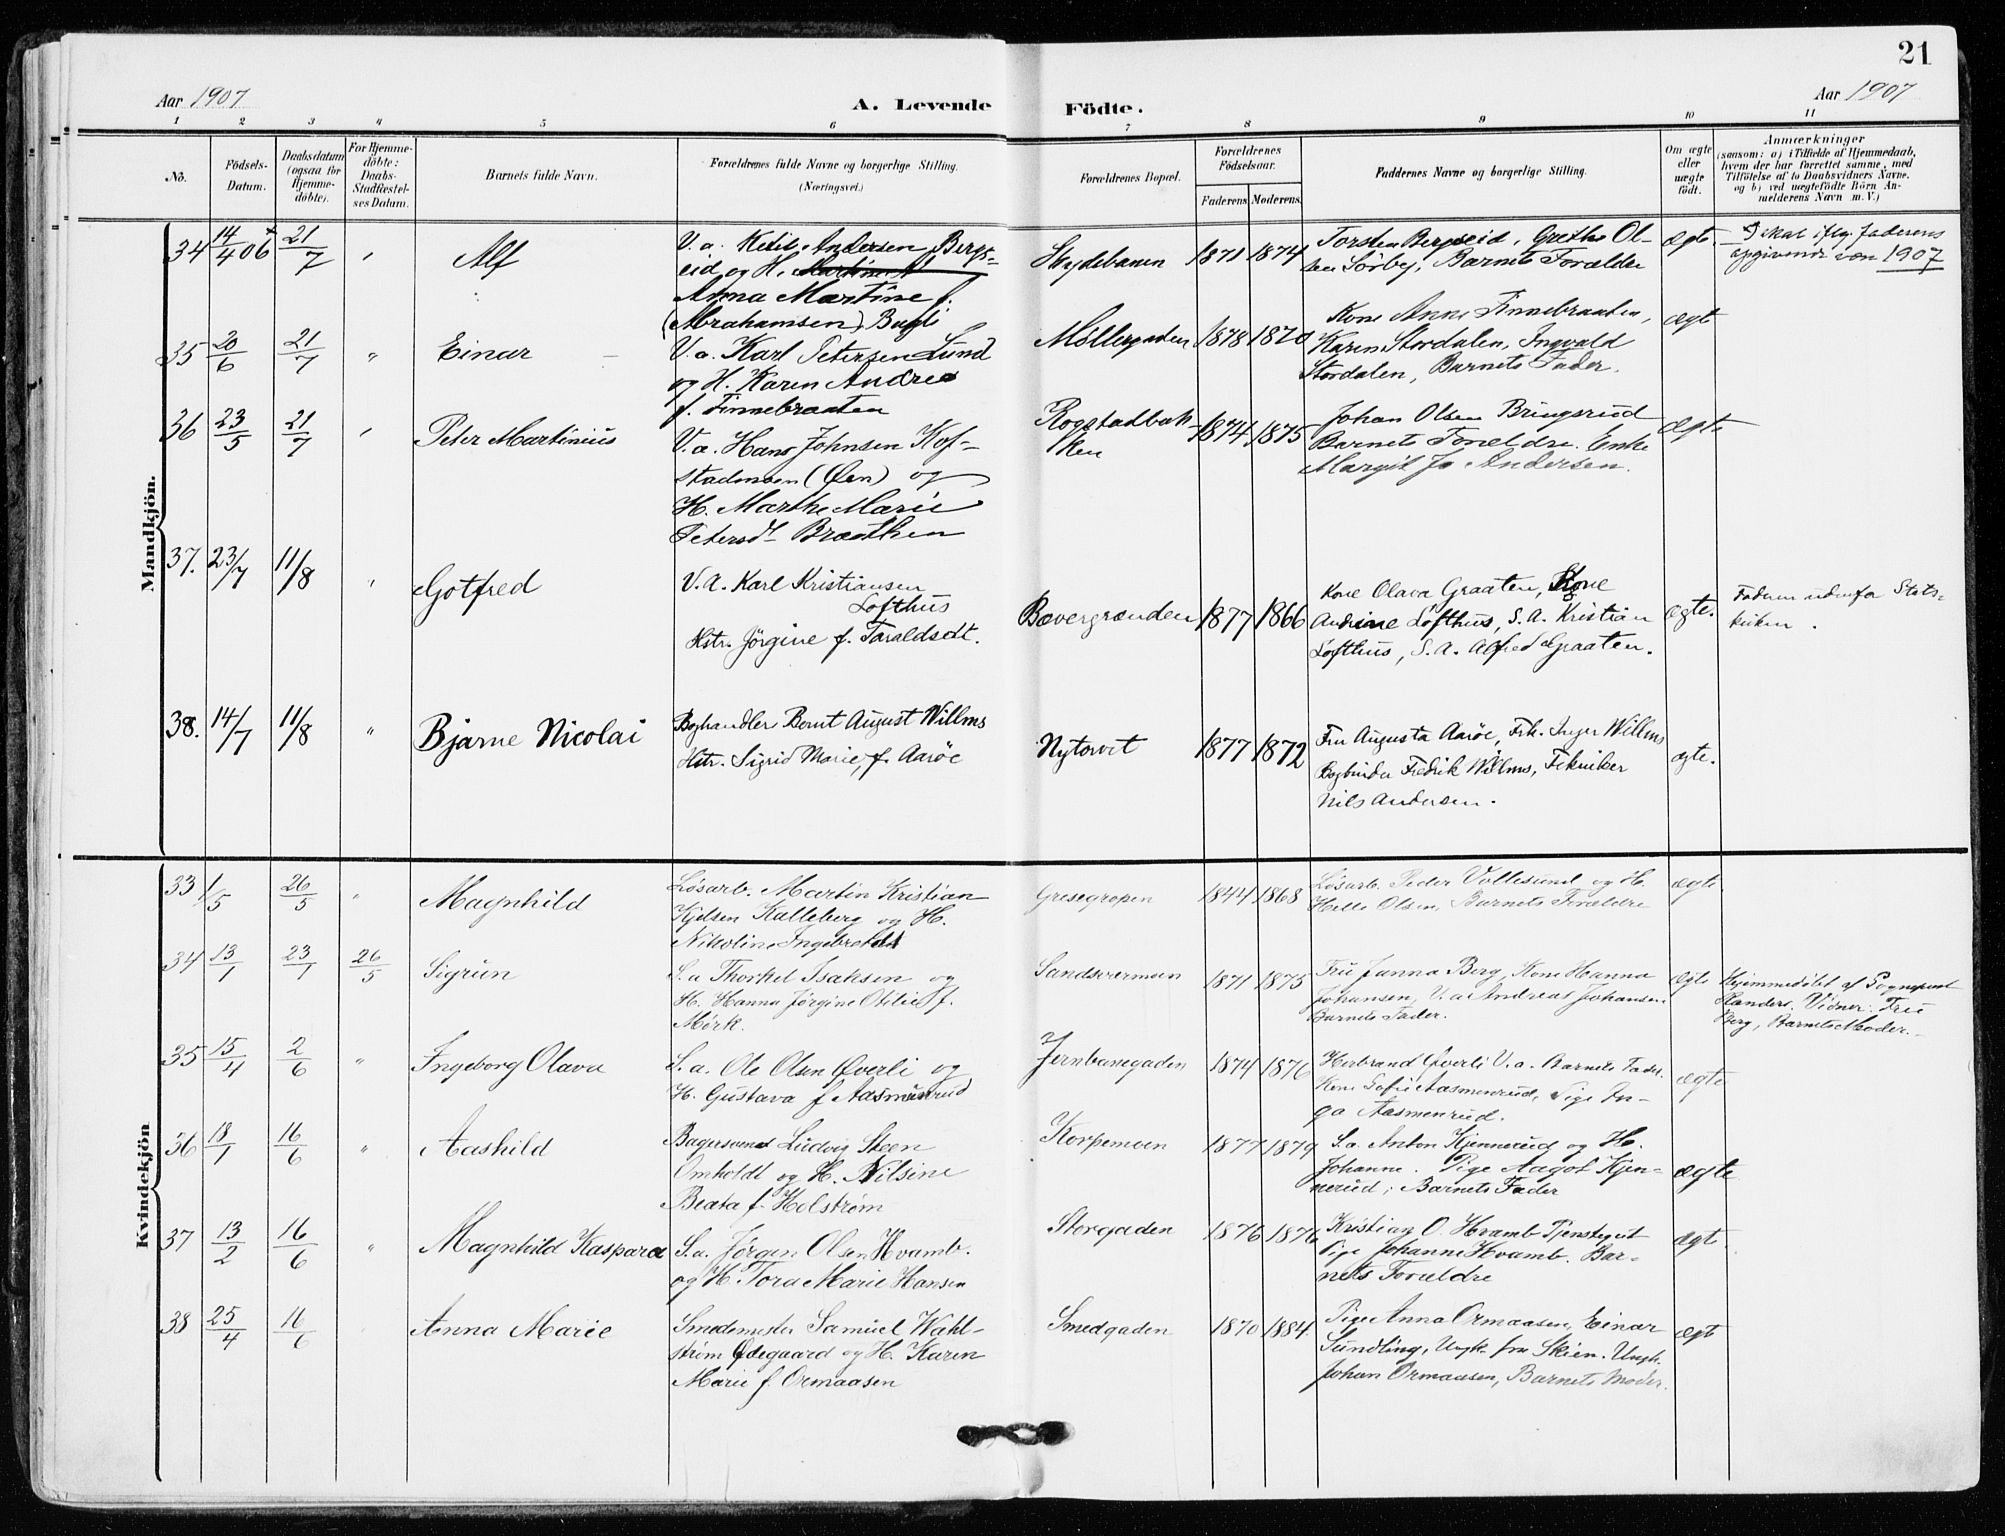 21
Aar 1907
A. Levende Födte.
Aar 1907
1 2 3 4 5 6 7 8 9 10 11
No.
Födsels-Datum.
Daabsdatum (ogsaa for Hjemme-döbte).
For Hjemme-döbte: Daabs-Stadfæstel-ses Datum.
Barnets fulde Navn.
Forældrenes fulde Navne og borgerlige Stilling.
(Næringsvei.)
Forældrenes Bopæl.
Forældrenes Födselsaar.
Faderens. Moderens.
Faddernes Navne og borgerlige Stilling.
Om ægte eller uægte födt.
Anmærkninger
(saasom: a) i Tilfælde af Hjemmedaab, hvem der har forrettet samme, med Tilföielse af to Daabsvidners Navne. og b) ved uægtefödte Börn An-melderens Navn m. V.)
Mandkjön.
34 14/4 06 + 21/7 " Alf
V. a. Ketil Andersen Bergs-
eid og H. Martine A
Anna Martine f.
(Abrahamsen) Bugli
Skydebanen 1871 1874
Torsten Bergseid, Grethe Ol-
sen Sörby, Barnets Forældre
ægte.
D skal iflg. faderens
opgivende være 1907
35 20/6 21/7 " Einar
V. a. Karl Petersen Lund
og H. Karen Andrea
f. Finnebraaten
Møllergaden 1878 1870
Kone Anne Finnebraaten,
Karen Stordalen, Ingvald
Stordalen, Barnets Fader.
ægte
36 23/5 21/7 " Peter Martinius
V. a. Hans Johnsen Kof-
stadmoen (Øen) og
H. Marthe Marie
Petersdt Braathen
Rogstadbak-
ken 1874 1875
Johan Olsen Bringsrud
Barnets Forældre. Enke
Margit Jo Andersen.
ægte
37. 23/7 11/8 " Gotfred
V. A. Karl Kristiansen
Lofthus
Hstr. Jörgine f. Taraldsdt.
Bævergrænden 1877 1866
Kone Olava Graaten, Kone
Andrine Lofthus, S. A. Kristian
Lofthus, S. A. Alfred Graaten.
ægte.
Faderen udenfor Stats-
kirken.
38. 14/7 11/8 " Bjarne Nicolai
Boghandler Bernt August Willms
Hstr. Sigrid Marie, f. Aarøe
Nytorvet 1877 1872
Fru Augusta Aarøe, Frk. Inger Willms
Bogbinder Fredrik Willms, Tekniker
Nils Andersen.
ægte.
Kvindekjön
33 1/5 26/5 " Magnhild
Løsarb. Martin Kristian
Kjelsen Kalleberg og H.
Nikoline Ingebretsdt
Gresegropen 1844 1868
Løsarb. Peder Vollesund og H.
Helle Olsen, Barnets Forældre
ægte
34 13/1 23/1 26/5 Sigrun
S. a Thorkel Isaksen og
H. Hanna Jørgine Otilie f.
Mörk.
Sandsværmoen 1871 1875
Fru Janna Berg, Kone Hanna
Johansen, V. a. Andreas Johansen
Barnets Fader.
ægte
Hjemmedøbt af Sogneprest
Randers. Vidner: Fru
Berg, Barnets Moder.
35 15/4 2/6 " Ingeborg Olava
S. a. Ole Olsen Øverli og
H. Gustava f. Aasmunrud
Jernbanegaden 1874 1876
Herbrand Øverli V. a. Barnets Fader.
Kone Sofie Aasmenrud, Pige In-
ga Aasmenrud.
ægte
36 18/1 16/6 " Aashild
Bagersvend Ludvig Steen
Omholdt og H. Nilsine
Beata f. Holstrøm
Korpemoen 1877 1879
S. a. Anton Kjennerud og H.
Johanne. Pige Aagot Kjen-
nerud; Barnets Fader
ægte
37 13/2 16/6 " Magnhild Kaspara
S. a. Jørgen Olsen Hvamb.
og H. Tora Marie Hansen
Storgaden 1876 1876
Kristian O. Hvamb Tjenstegut
Pige Johanne Hvamb. Bar-
nets Forældre
ægte
38 25/4 16/6 Anna Marie
Smedemester Samuel Wahl-
strøm Ødegaard og H. Karen
Marie f. Ormaasen
Smedgaden 1870 1884.
Pige Anna Ormaasen, Einar
Sundling, Ungk. fra Skien. Ungk.
Johan Ormaasen, Barnets Moder.
ægte